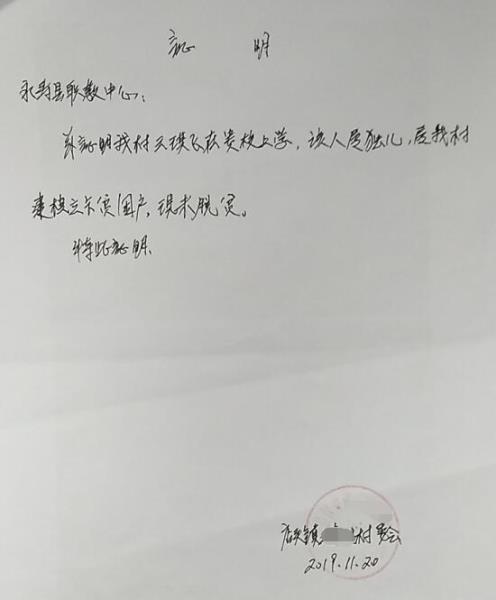 证 明
永寿县职教中心:
兹证明我村王琪飞在贵校上学,该人属独儿,属我村
建档立卡贫困户,现未脱贫。
特此证明
店头镇 村委会
2019.11.20